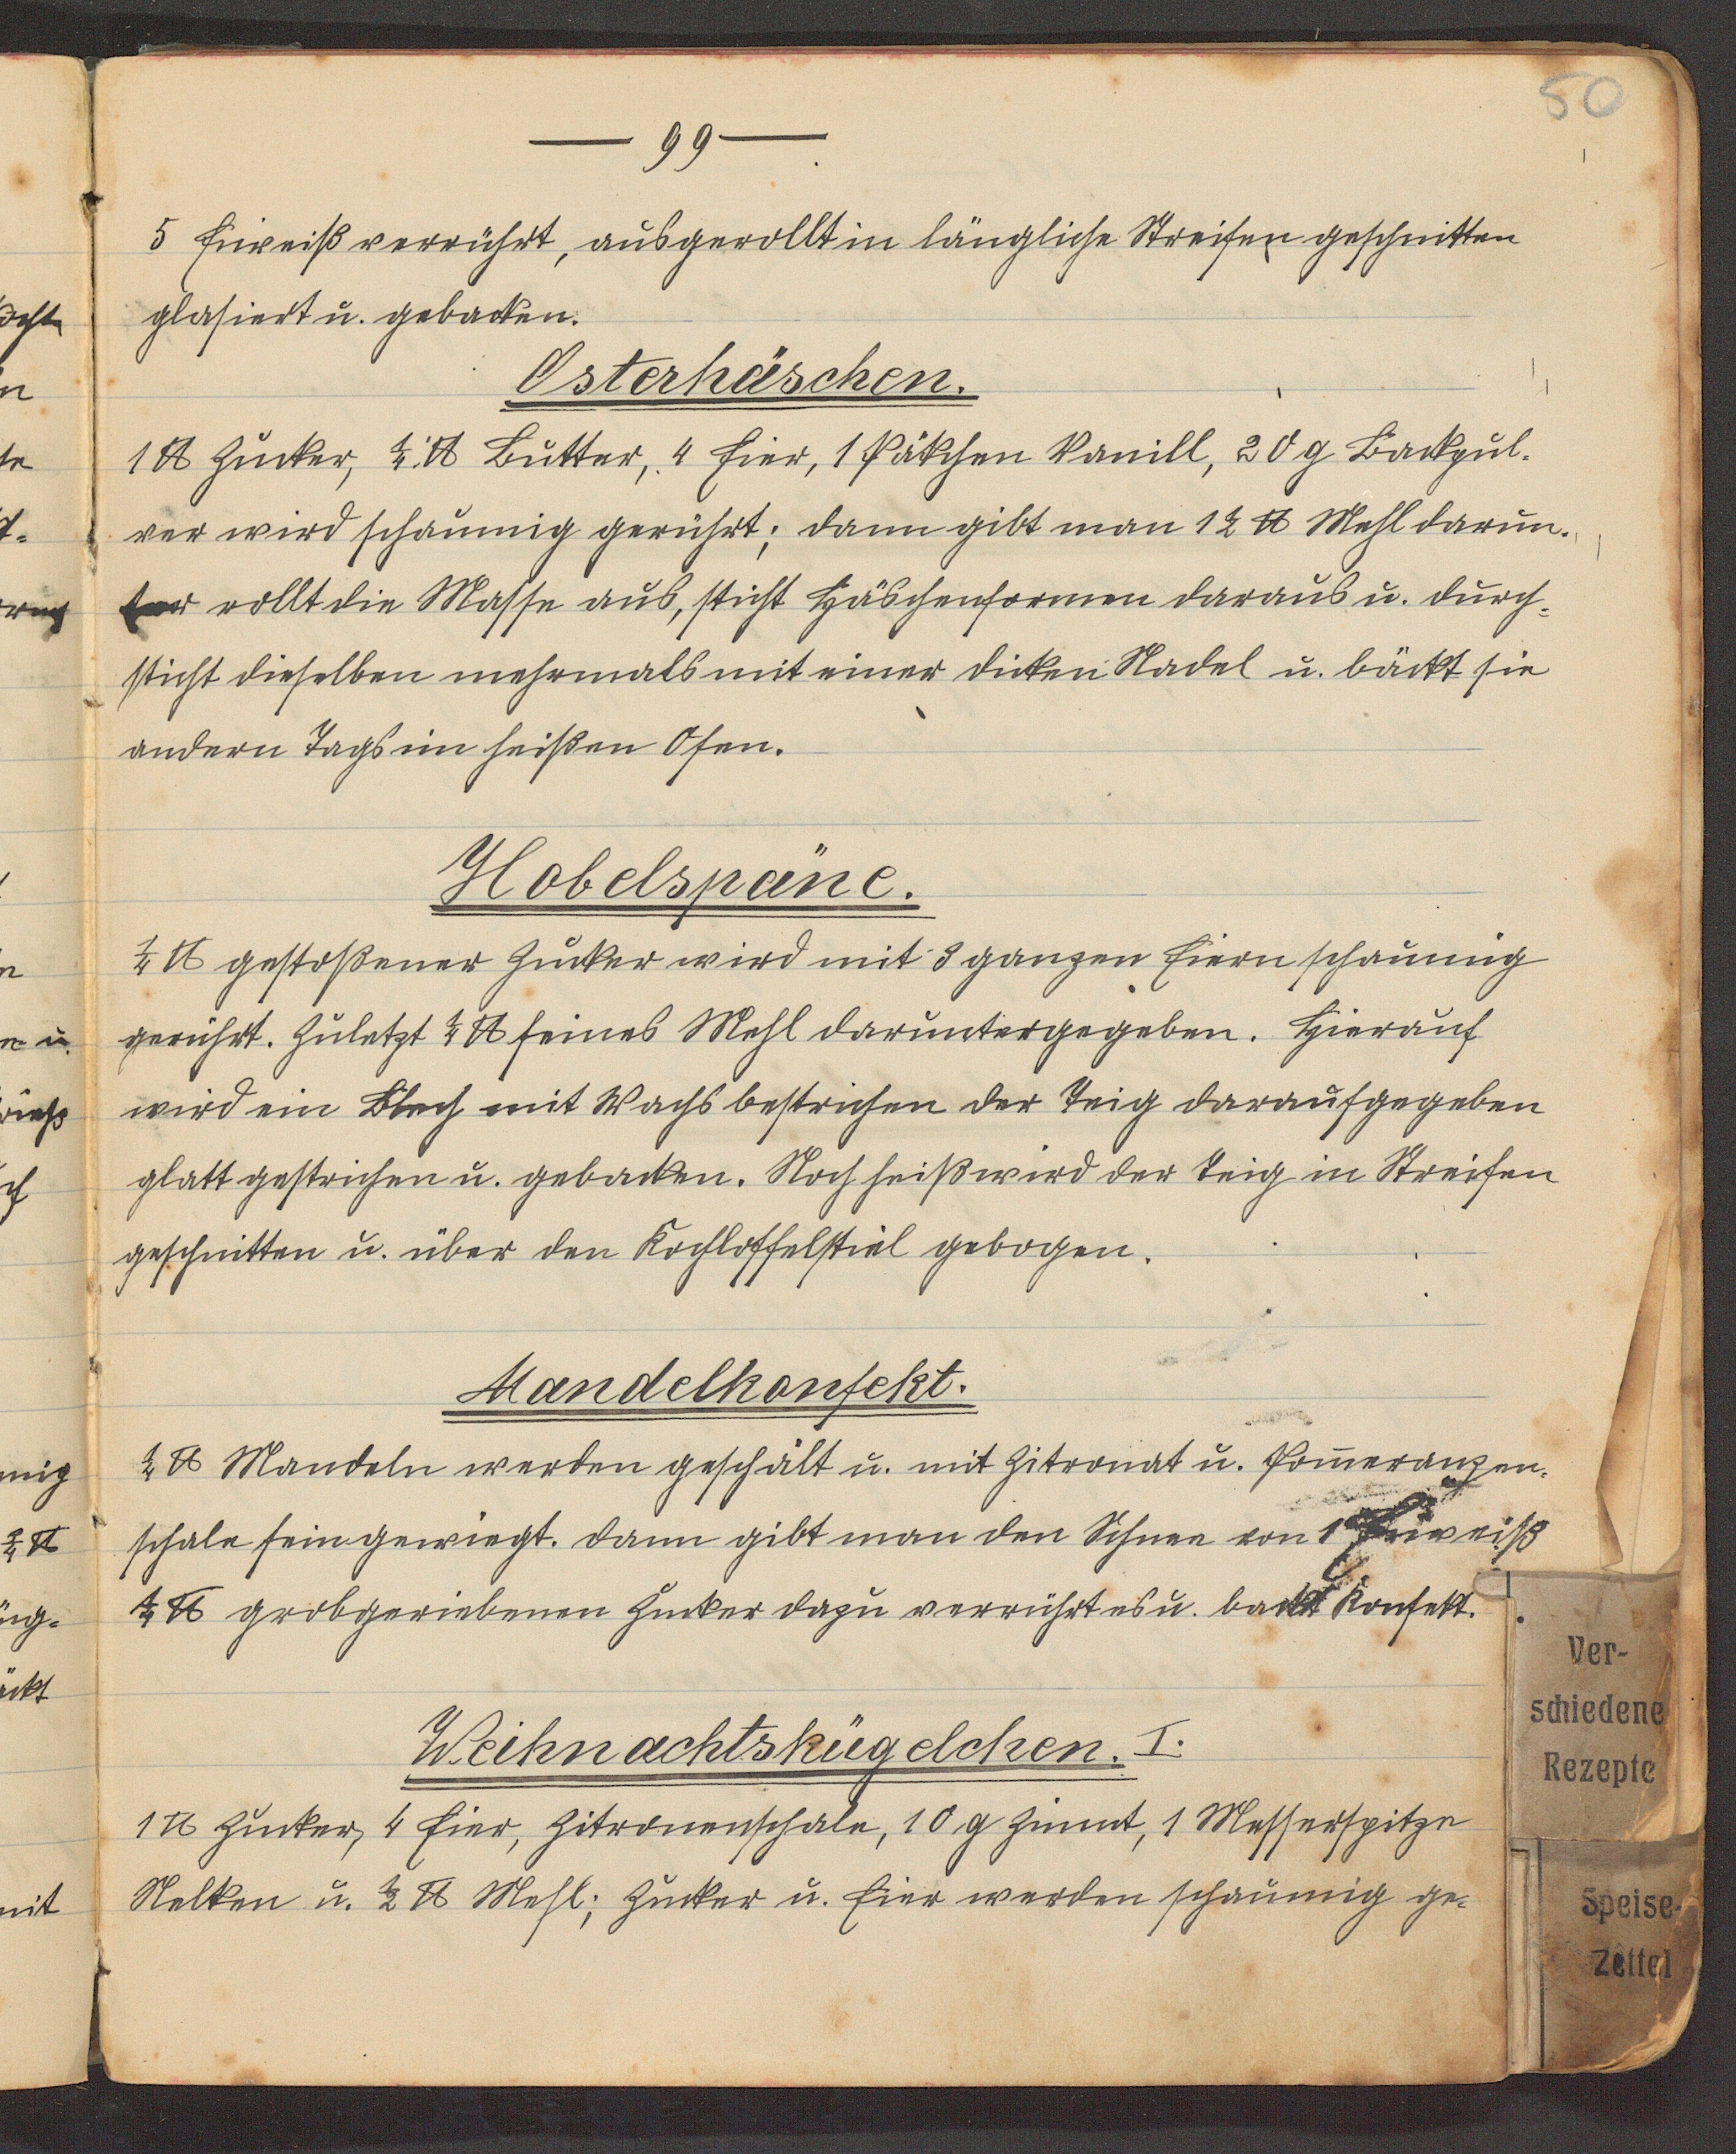 50
— 99 —
5 Eiweiß verrührt, ausgerollt in längliche Streifen geschnitten
glasiert u. gebacken.
Osterhäschen.
1 ℔ Zucker, ¼ ℔ Butter, 4 Eier, 1 Päkchen Vanill, 20 g Backpul-
ver wird schaumig gerührt; dann gibt man 1½ ℔ Mehl darun-
ter rollt die Masse aus, sticht Häschenformen daraus u. durch-
sticht dieselben mehrmals mit einer dicken Nadel u. bäckt sie
andern Tags im heißen Ofen.
Hobelspäne.
¼ ℔ gestoßener Zucker wird mit 3 ganzen Eiern schaumig
gerührt. Zuletzt ¼ ℔ feines Mehl daruntergegeben. Hierauf
wird ein Blech mit Wachs bestrichen der Teig daraufgegeben
glatt gestrichen u. gebacken. Noch heiß wird der Teig in Streifen
geschnitten u. über den Kochloffelstiel gebogen.
Mandelkonfekt.
¼ ℔ Mandeln werden geschält u. mit Zitronat u. Pom̄eranzen-
schale fein gewiegt. dann gibt man den Schnee von 1 Eiweiß
¼ ℔ grobgeriebenen Zucker dazu verrührt es u. backt Konfekt.
Weihnachtskügelchen. I.
1 ℔ Zucker, 4 Eier, Zitronenschale, 10 g Zimmt, 1 Messerspitze
Nelken u. ½ ℔ Mehl; Zucker u. Eier werden schaumig ge-
Ver-
schiedene
Rezepte
Speise-
Zettel